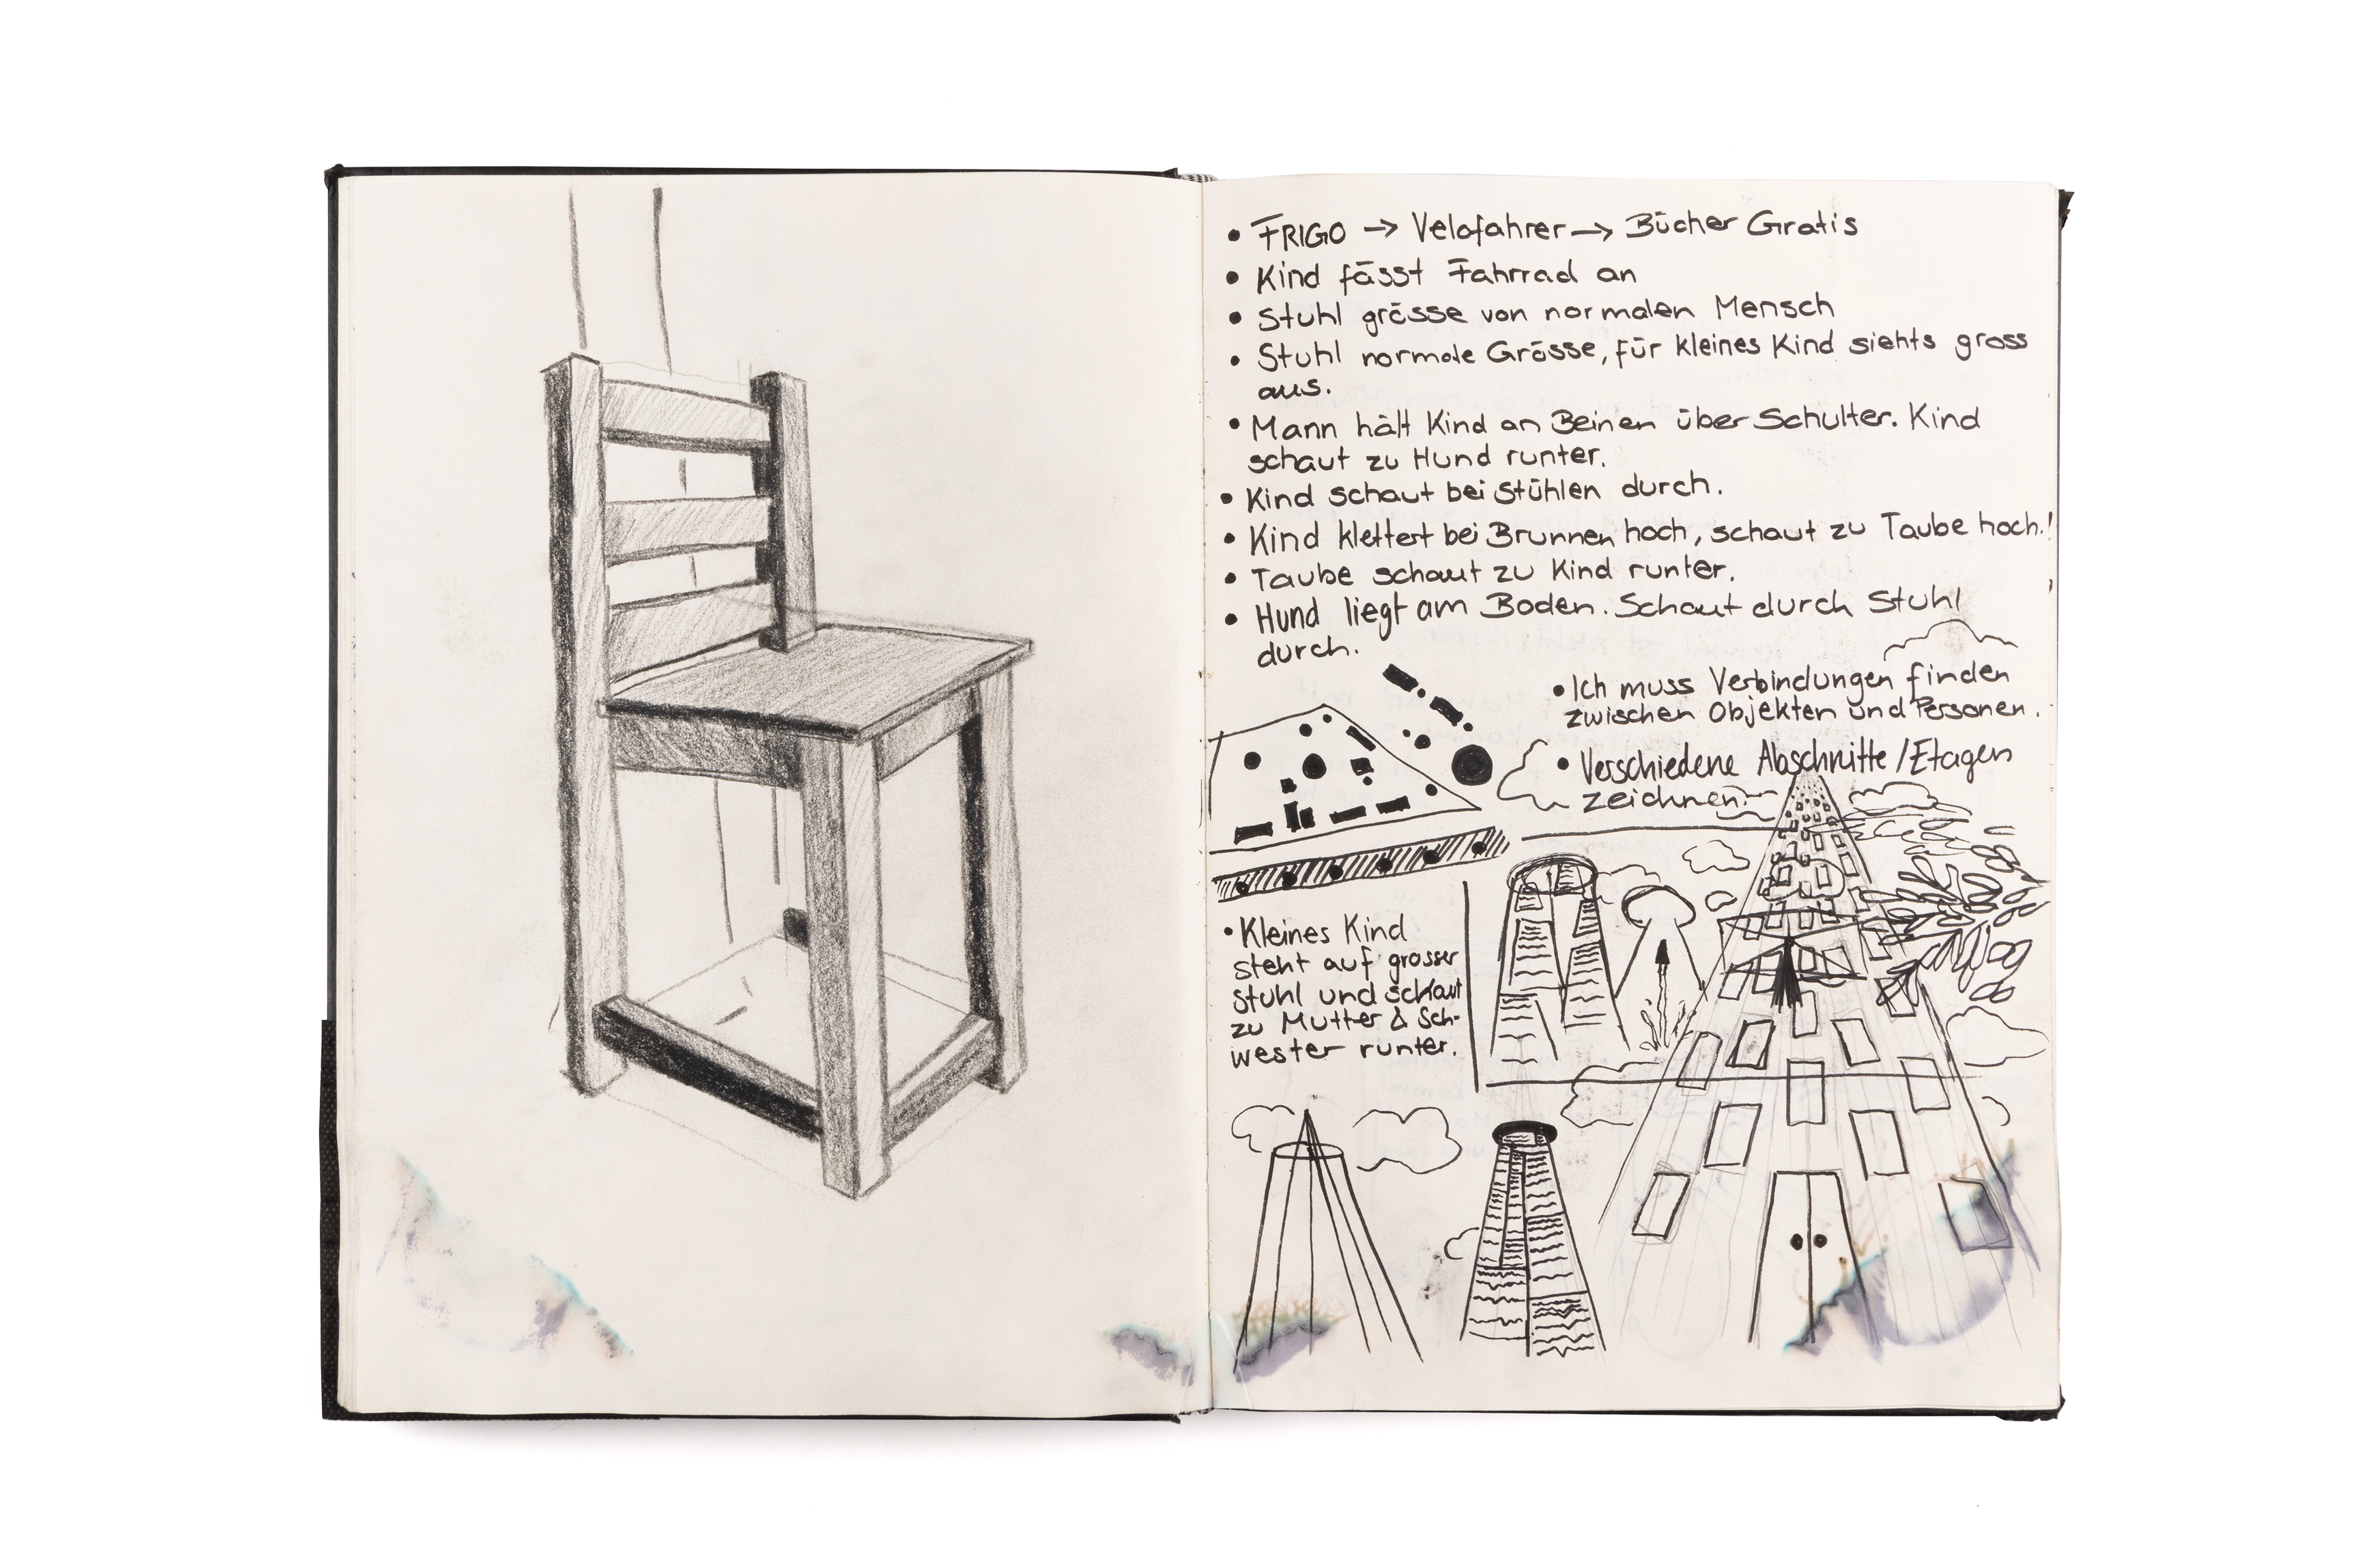 • FRIGO → Velofahrer → Bücher Gratis
• Kind fässt Fahrrad an
• Stuhl grösse von normalen Mensch
• Stuhl normale Grösse, für kleines Kind siehts gross
aus.
• Mann hält Kind an Beinen über Schulter. Kind
schaut zu Hund runter.
• Kind schaut bei Stühlen durch.
• Kind klettert bei Brunnen hoch, schaut zu Taube hoch.!
• Taube schaut zu Kind runter.
• Hund liegt am Boden. Schaut durch Stuhl
durch.
• Ich muss Verbindungen finden
zwischen Objekten und Personen.
• Verschiedene Abschnitte/Etagen
zeichnen.
• Kleines Kind
steht auf grosser
Stuhl und schaut
zu Mutter & Sch-
wester runter.